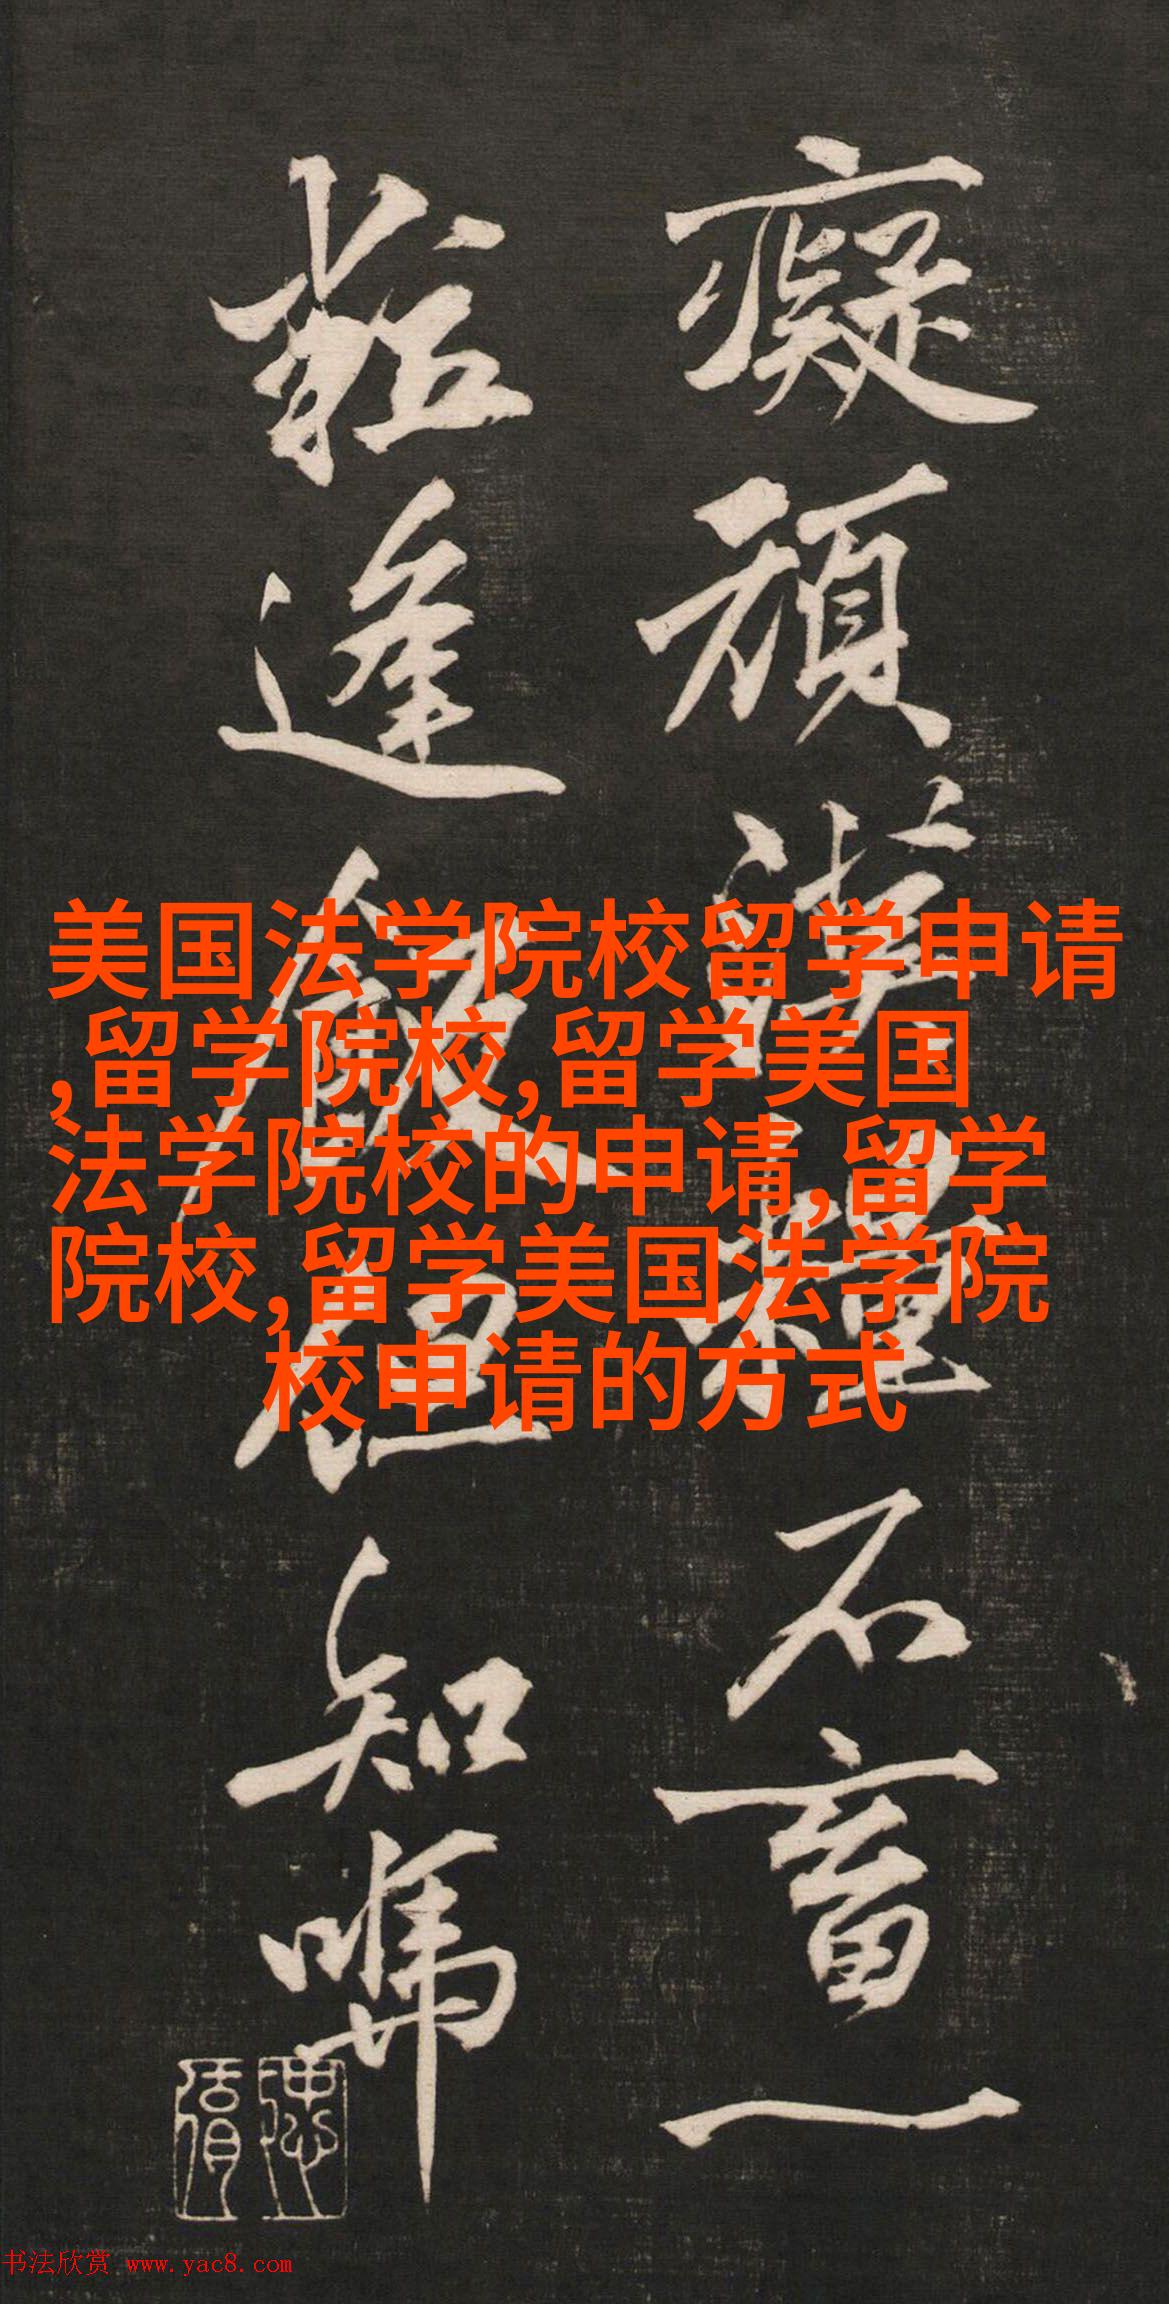 癡頑漢糧不畜一
粒逢飯但知
美国法学院校留学申请
,留学院校,留学美国
法学院校的申请,留学
院校,留学美国法学院
校申请的方式
书法欣赏 www.yac8.com